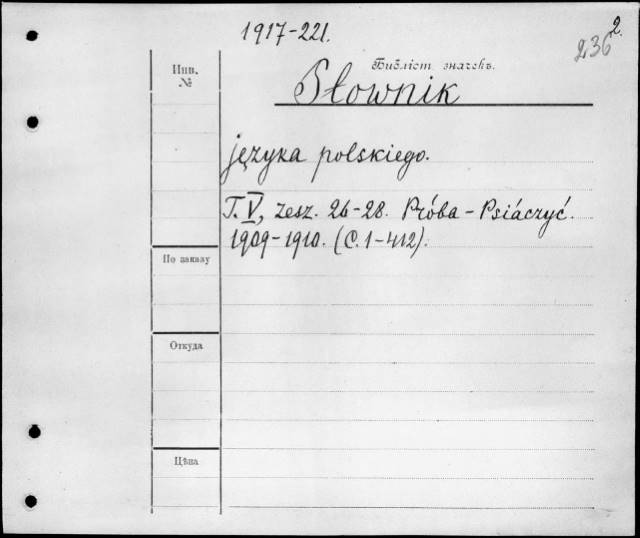 1917-221.
2.
236
Инв.
№
Библіот. значекъ.
Słownik
języka polskiego.
T. V, zesz. 26-28. Próba - Psiáczyć.
1909-1910. (С. 1-412).
По заказу
Откуда
Цѣна